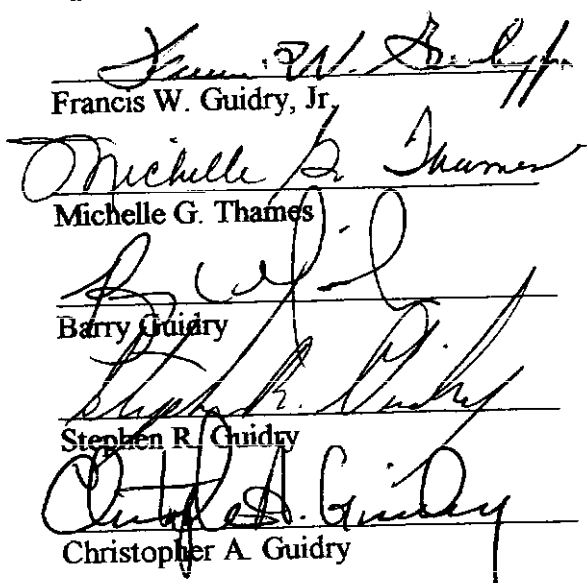 Francis W. Guidry, Jr.
Michelle G. Thames
Michelle G. Thames
Barry Guidry
Stephen R. Guidry
Stephen R. Guidry
Christopher A. Guidry
Christopher A. Guidry